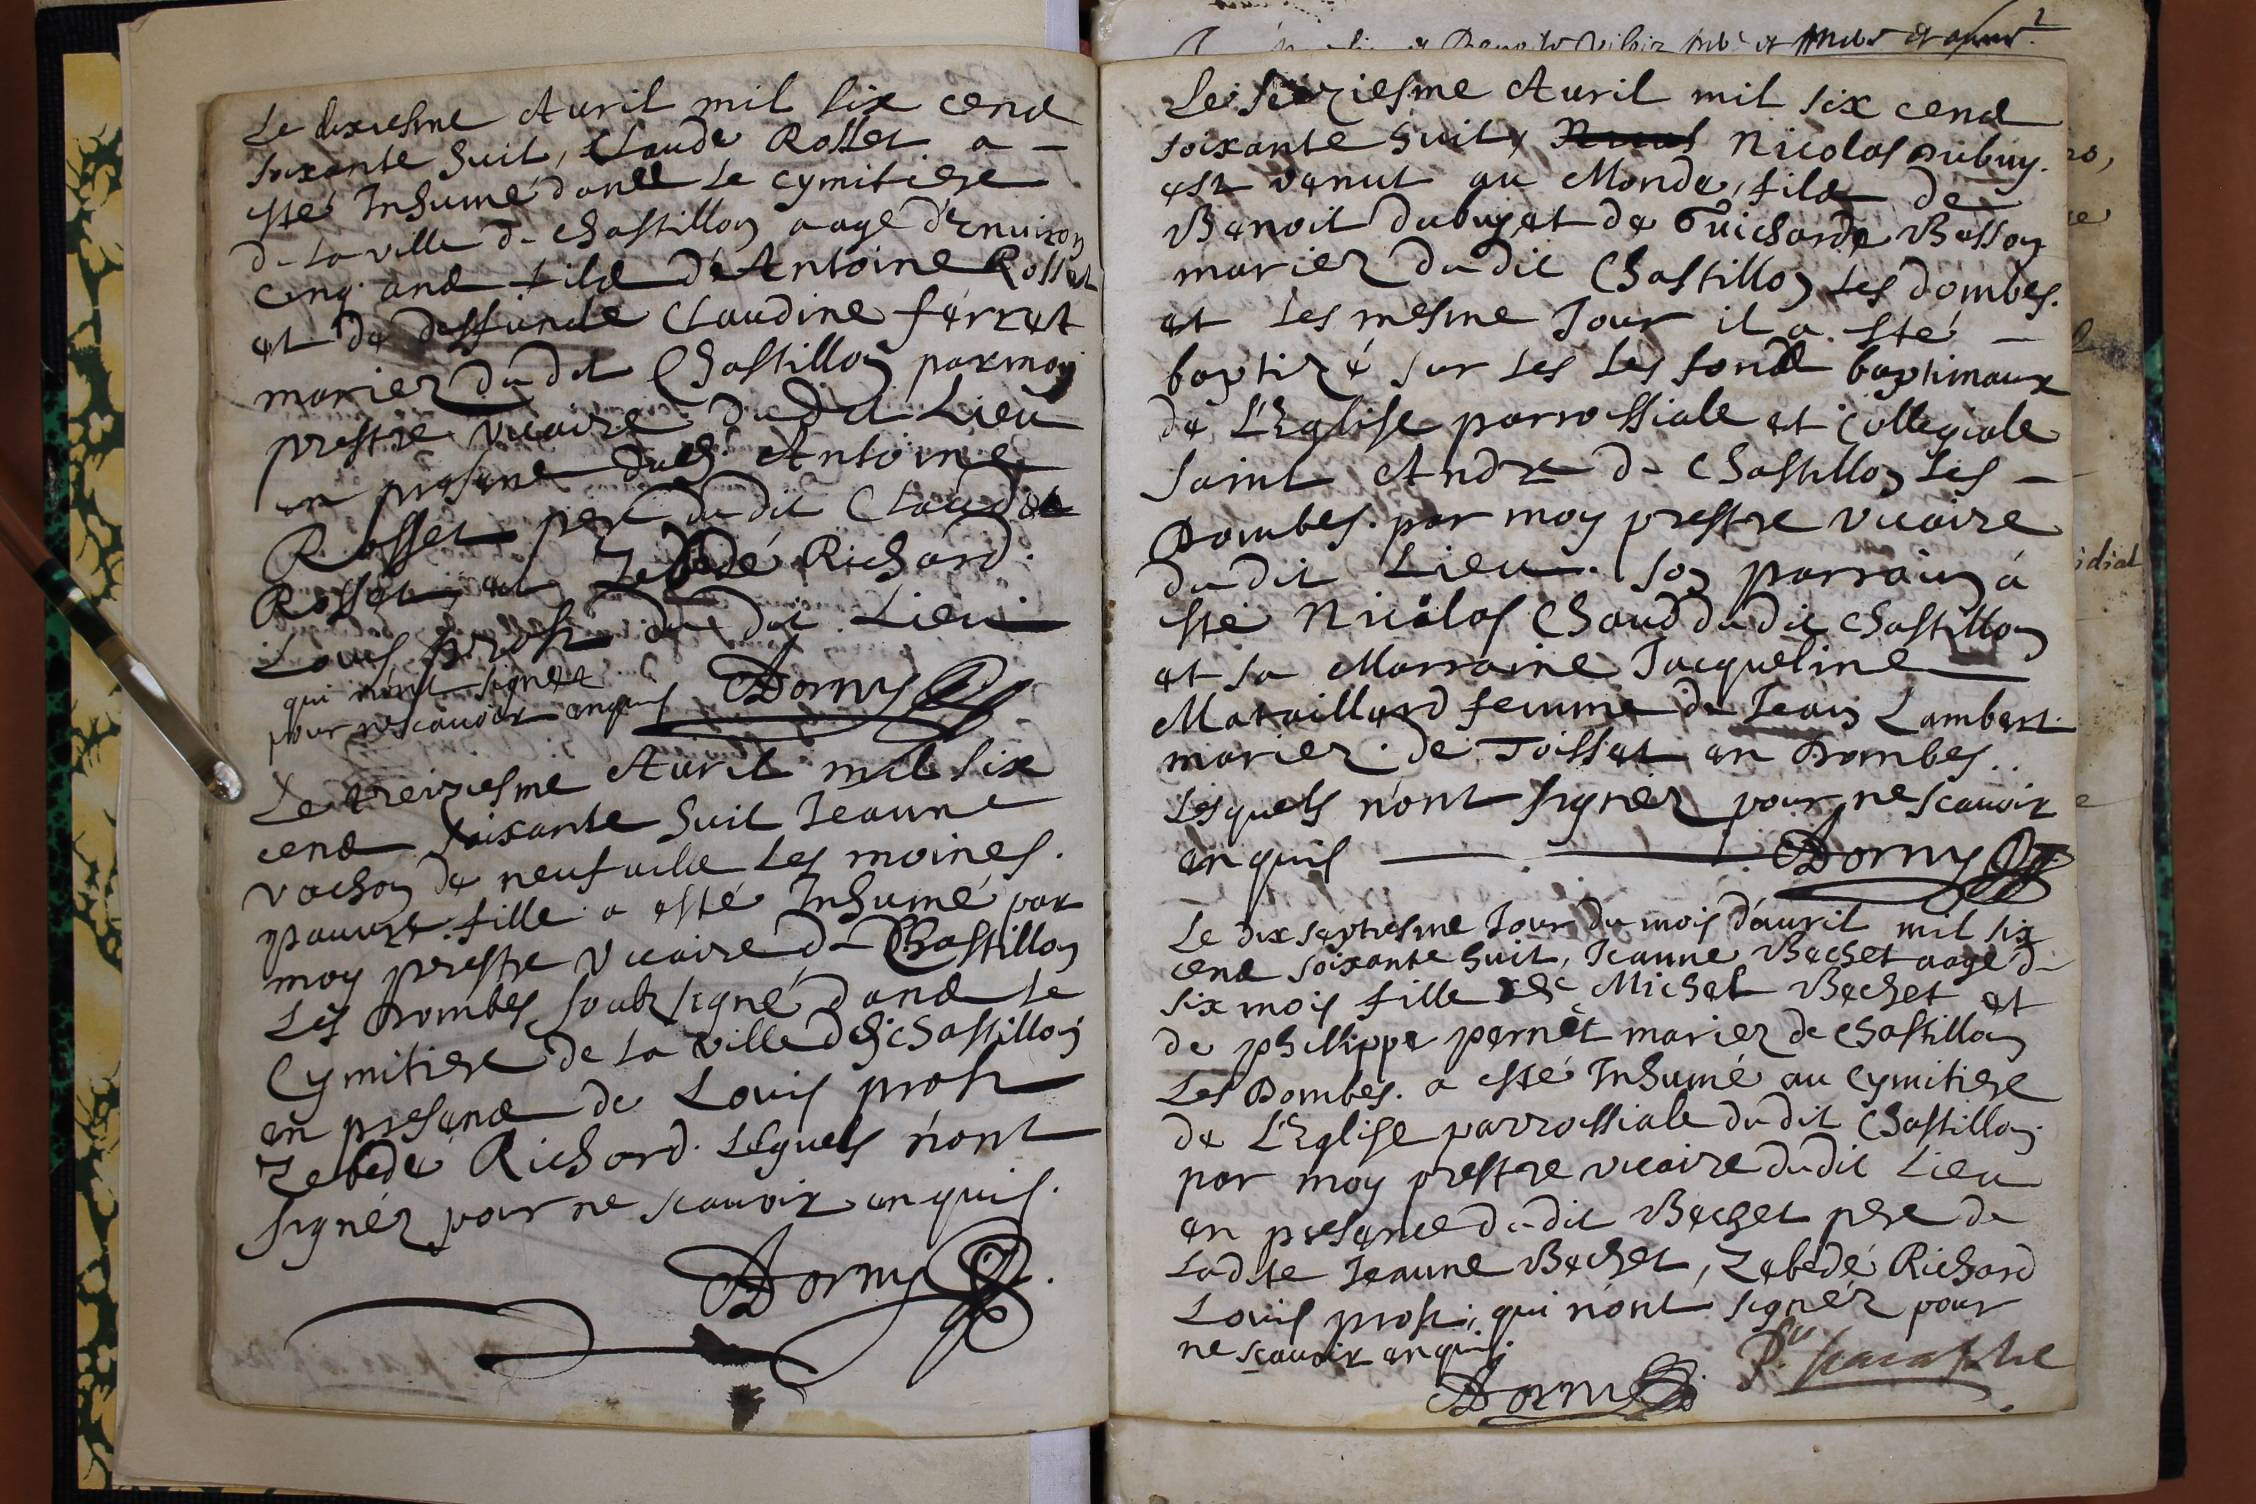 Le dixiesme Auril mil six cend
soixante huit, Claude Rosset a -
esté Inhumé dans Le cymitiere
de La ville de Chastillon aagé d'enuiron
cinq ans fils d'Antoine Rosset
et de deffuncte Claudine ferret
mariez du dit Chastillon par moy
prestre vicaire du dit Lieu
en presence dud. Antoine
Rosset pere du dit Claude
Rosset, et Zebedé Richard.
Louis prost du dit Lieu
qui n'ont signez
pour ne scauoir enquis Dorny
Le treiziesme Auril mil six
cend soixante huit Jeanne
vachon de neufuille Les moines.
pauure fille a esté Inhumé par
moy prestre vicaire de Chastillon
Les Dombes soubsigné dans Le
Cymitiere de La ville de Chastillon
en presence de Louis prost
Zebedé Richard. Lesquels n'ont
signéz pour ne scauoir enquis.
Dorny
Le seiziesme Auril mil six cend
soixante huit, Nicolas Dubuy.
est venut au Monde, fils de
Benoit dubuy et de Guicharde Besson
mariez du dit Chastillon Les dombes.
et Les mesme Jour il a esté -
baptizé sur Les Les fonds baptimaux
de L'Eglise parrossiale et Collegiale
saint Andre de Chastillon Les -
Dombes. par moy prestre vicaire
du dit Lieu. son parrain à
esté Nicolas Chaud du dit Chastillon
et sa Marraine Jacqueline
Mataillard femme de Jean Lambert.
mariez de Toisset en Dombes.
Lesquels n'ont signez pour ne scauoir
enquis Dorny
Le dix septiesme Jour du mois d'auril mil six
cend soixante huit, Jeanne Bechet aagé de
six mois fille de Michel Bechet et
de phillippe pernet mariez de Chastillon
Les Dombes. a esté Inhumé au Cymitiere
de L'Eglise parrossiale du dit Chastillon
par moy prestre vicaire du dit Lieu
en presence du dit Bechet pere de
Ladite Jeanne Bechet, Zebedé Richard
Louis prost, qui n'ont signéz pour
ne scauoir enquis.
Dorny